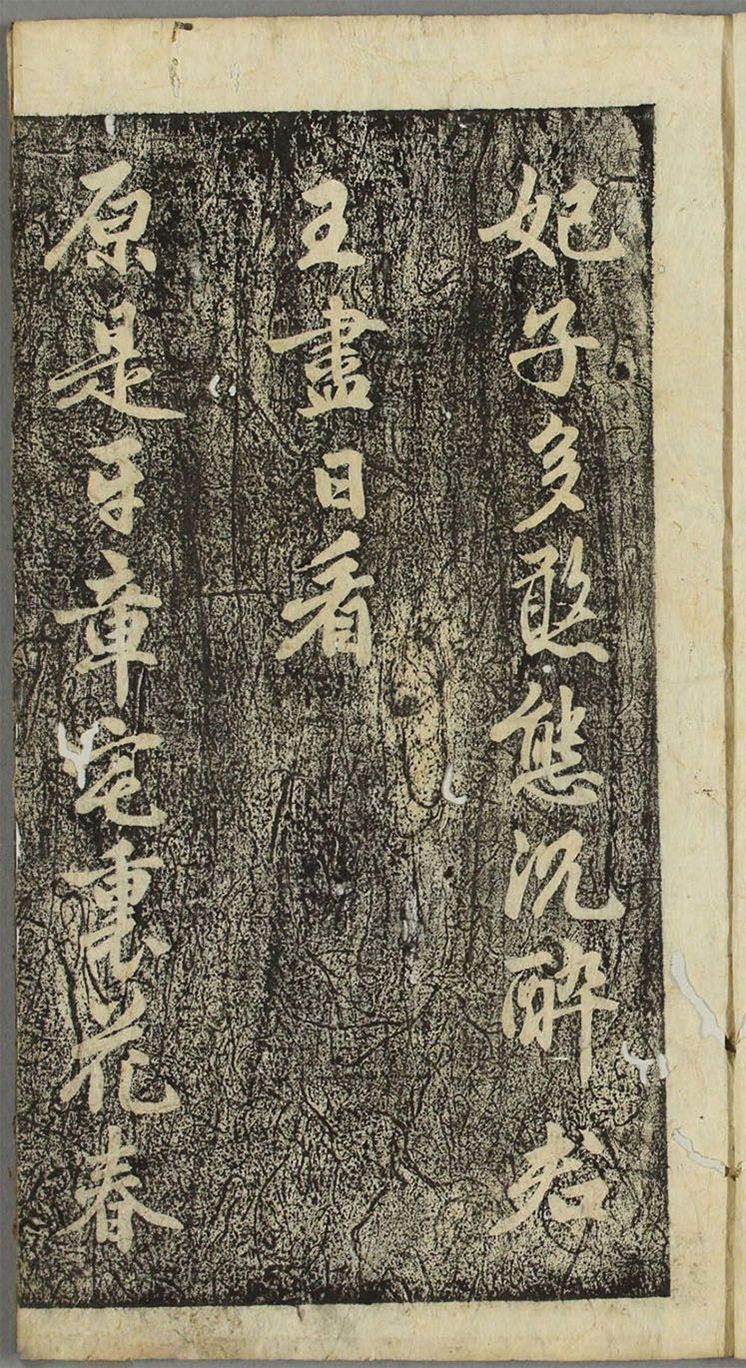 妃子多憨態沉醉君
王盡日看
原是平章宅花春